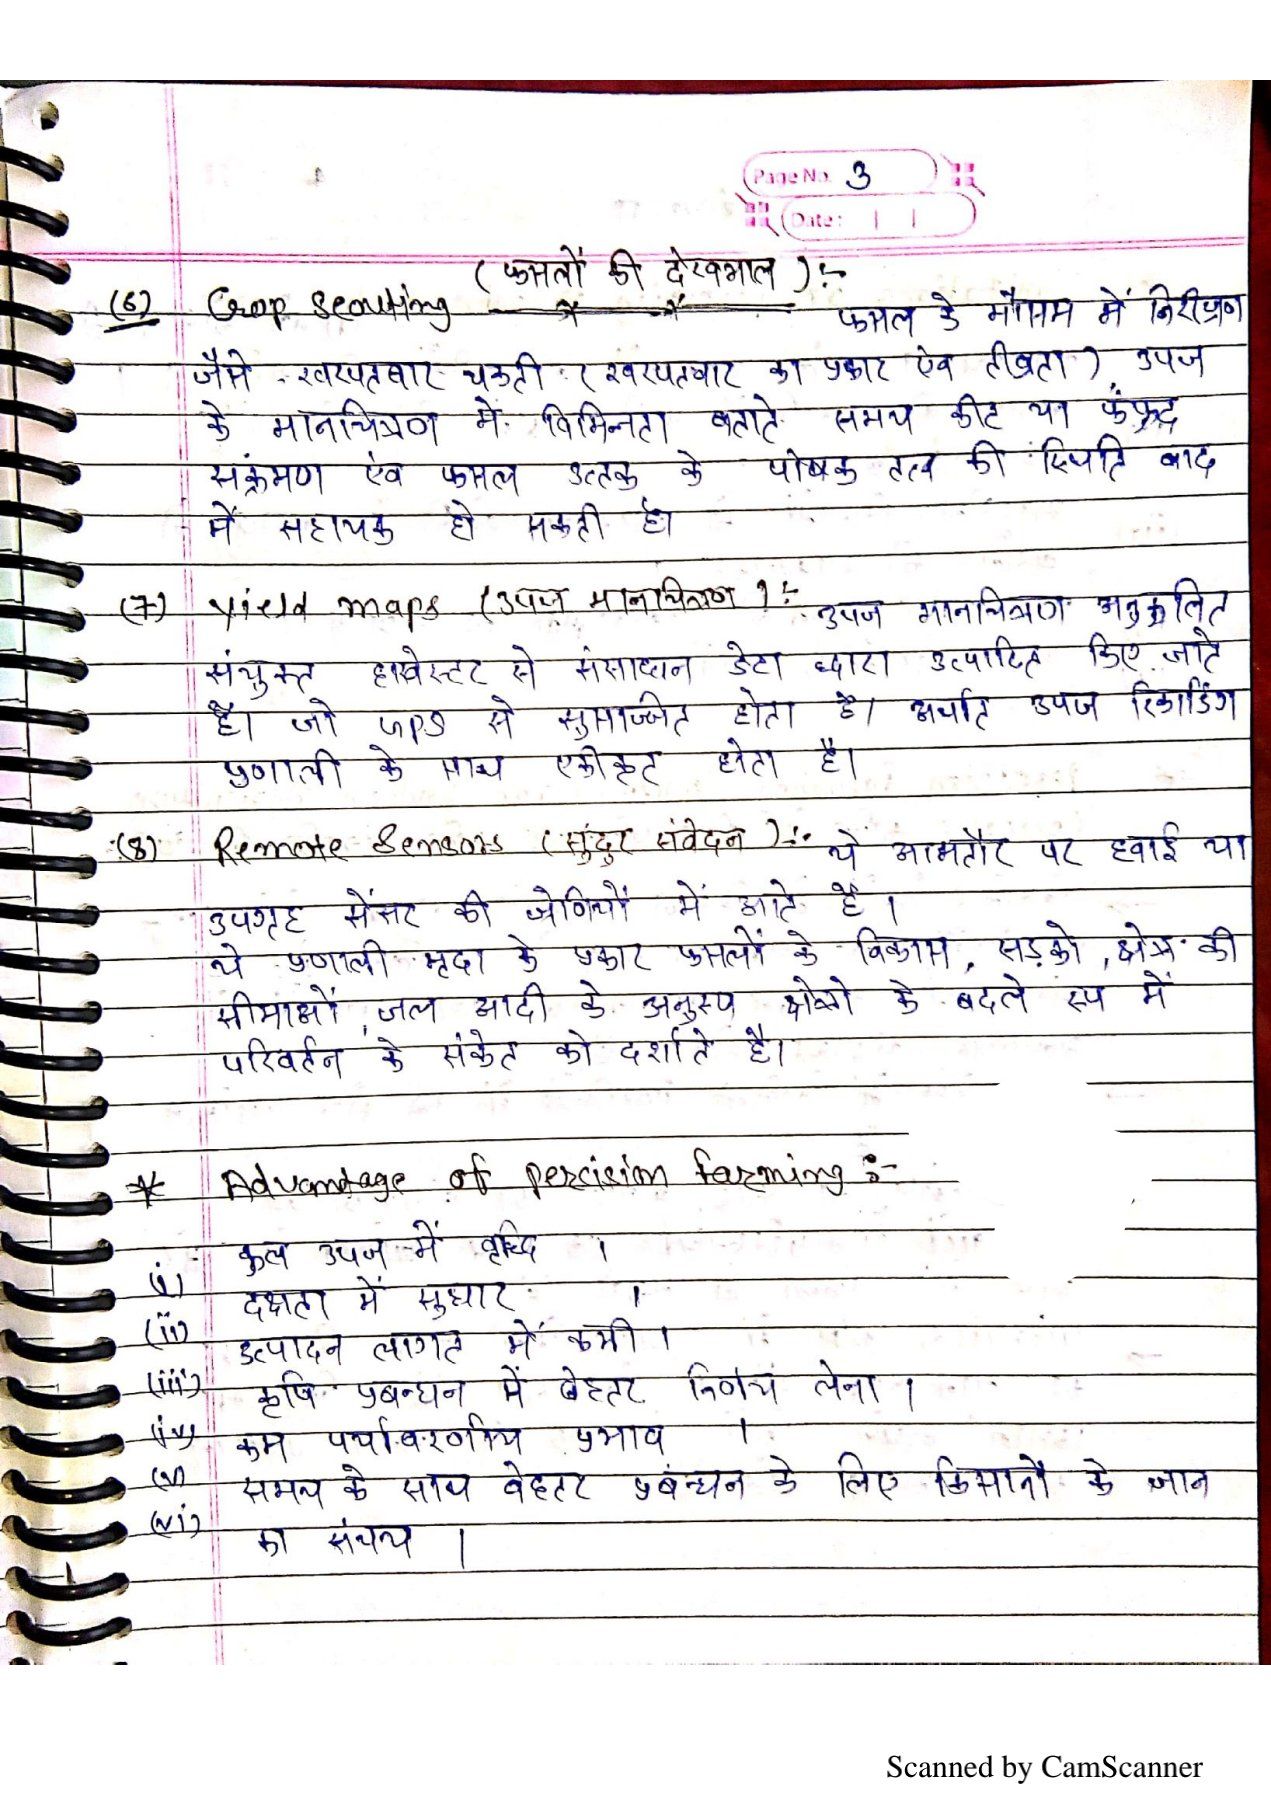 Page No. 3
Date:
(फसलों की देखभाल ):-
(6) Crop scouting फसल के मौसम में निरीक्षण
जैसे - खरपतवार चकती (खरपतवार का प्रकार ऐंव तीव्रता), उपज
के मानचित्रण में विभिन्नता बताते समय कीट या फंफूद
संक्रमण ऐंव फसल उत्तक के पोषक तत्व की स्थिति बाद
में सहायक हो सकती है।
(7) Yield maps (उपज मानचित्रण ):- उपज मानचित्रण अनुकूलित
संयुक्त हार्वेस्टर से संसाधन डेटा द्धारा उत्पादित किए जाते
है। जो GPS से सुसज्जित होता है। अर्थात उपज रिकार्डिंग
प्रणाली के साथ एकीकृत होता है।
(8) Remote Sensors (सुंदुर संवेदन ):- ये आमतौर पर हवाई या
उपगृह सेंसर की श्रेणियों में आते है।
ये प्रणाली मृदा के प्रकार फसलों के विकास, सड़को, क्षेत्र की
सीमाओं, जल आदी के अनुरूप क्षेत्रो के बदले रूप में
परिवर्तन के संकेत को दर्शाते है।
* Advantage of percision farming :-
(i) कुल उपज में वृद्धि ।
(ii) दक्षता में सुधार ।
(iii) उत्पादन लागत में कमी ।
(iv) कृषि प्रबन्धन में बेहतर निर्णय लेना ।
(v) कम पर्यावरणीय प्रभाव ।
(vi) समय के साथ बेहतर प्रबंन्धन के लिए किसानों के ज्ञान
का संचय ।
Scanned by CamScanner